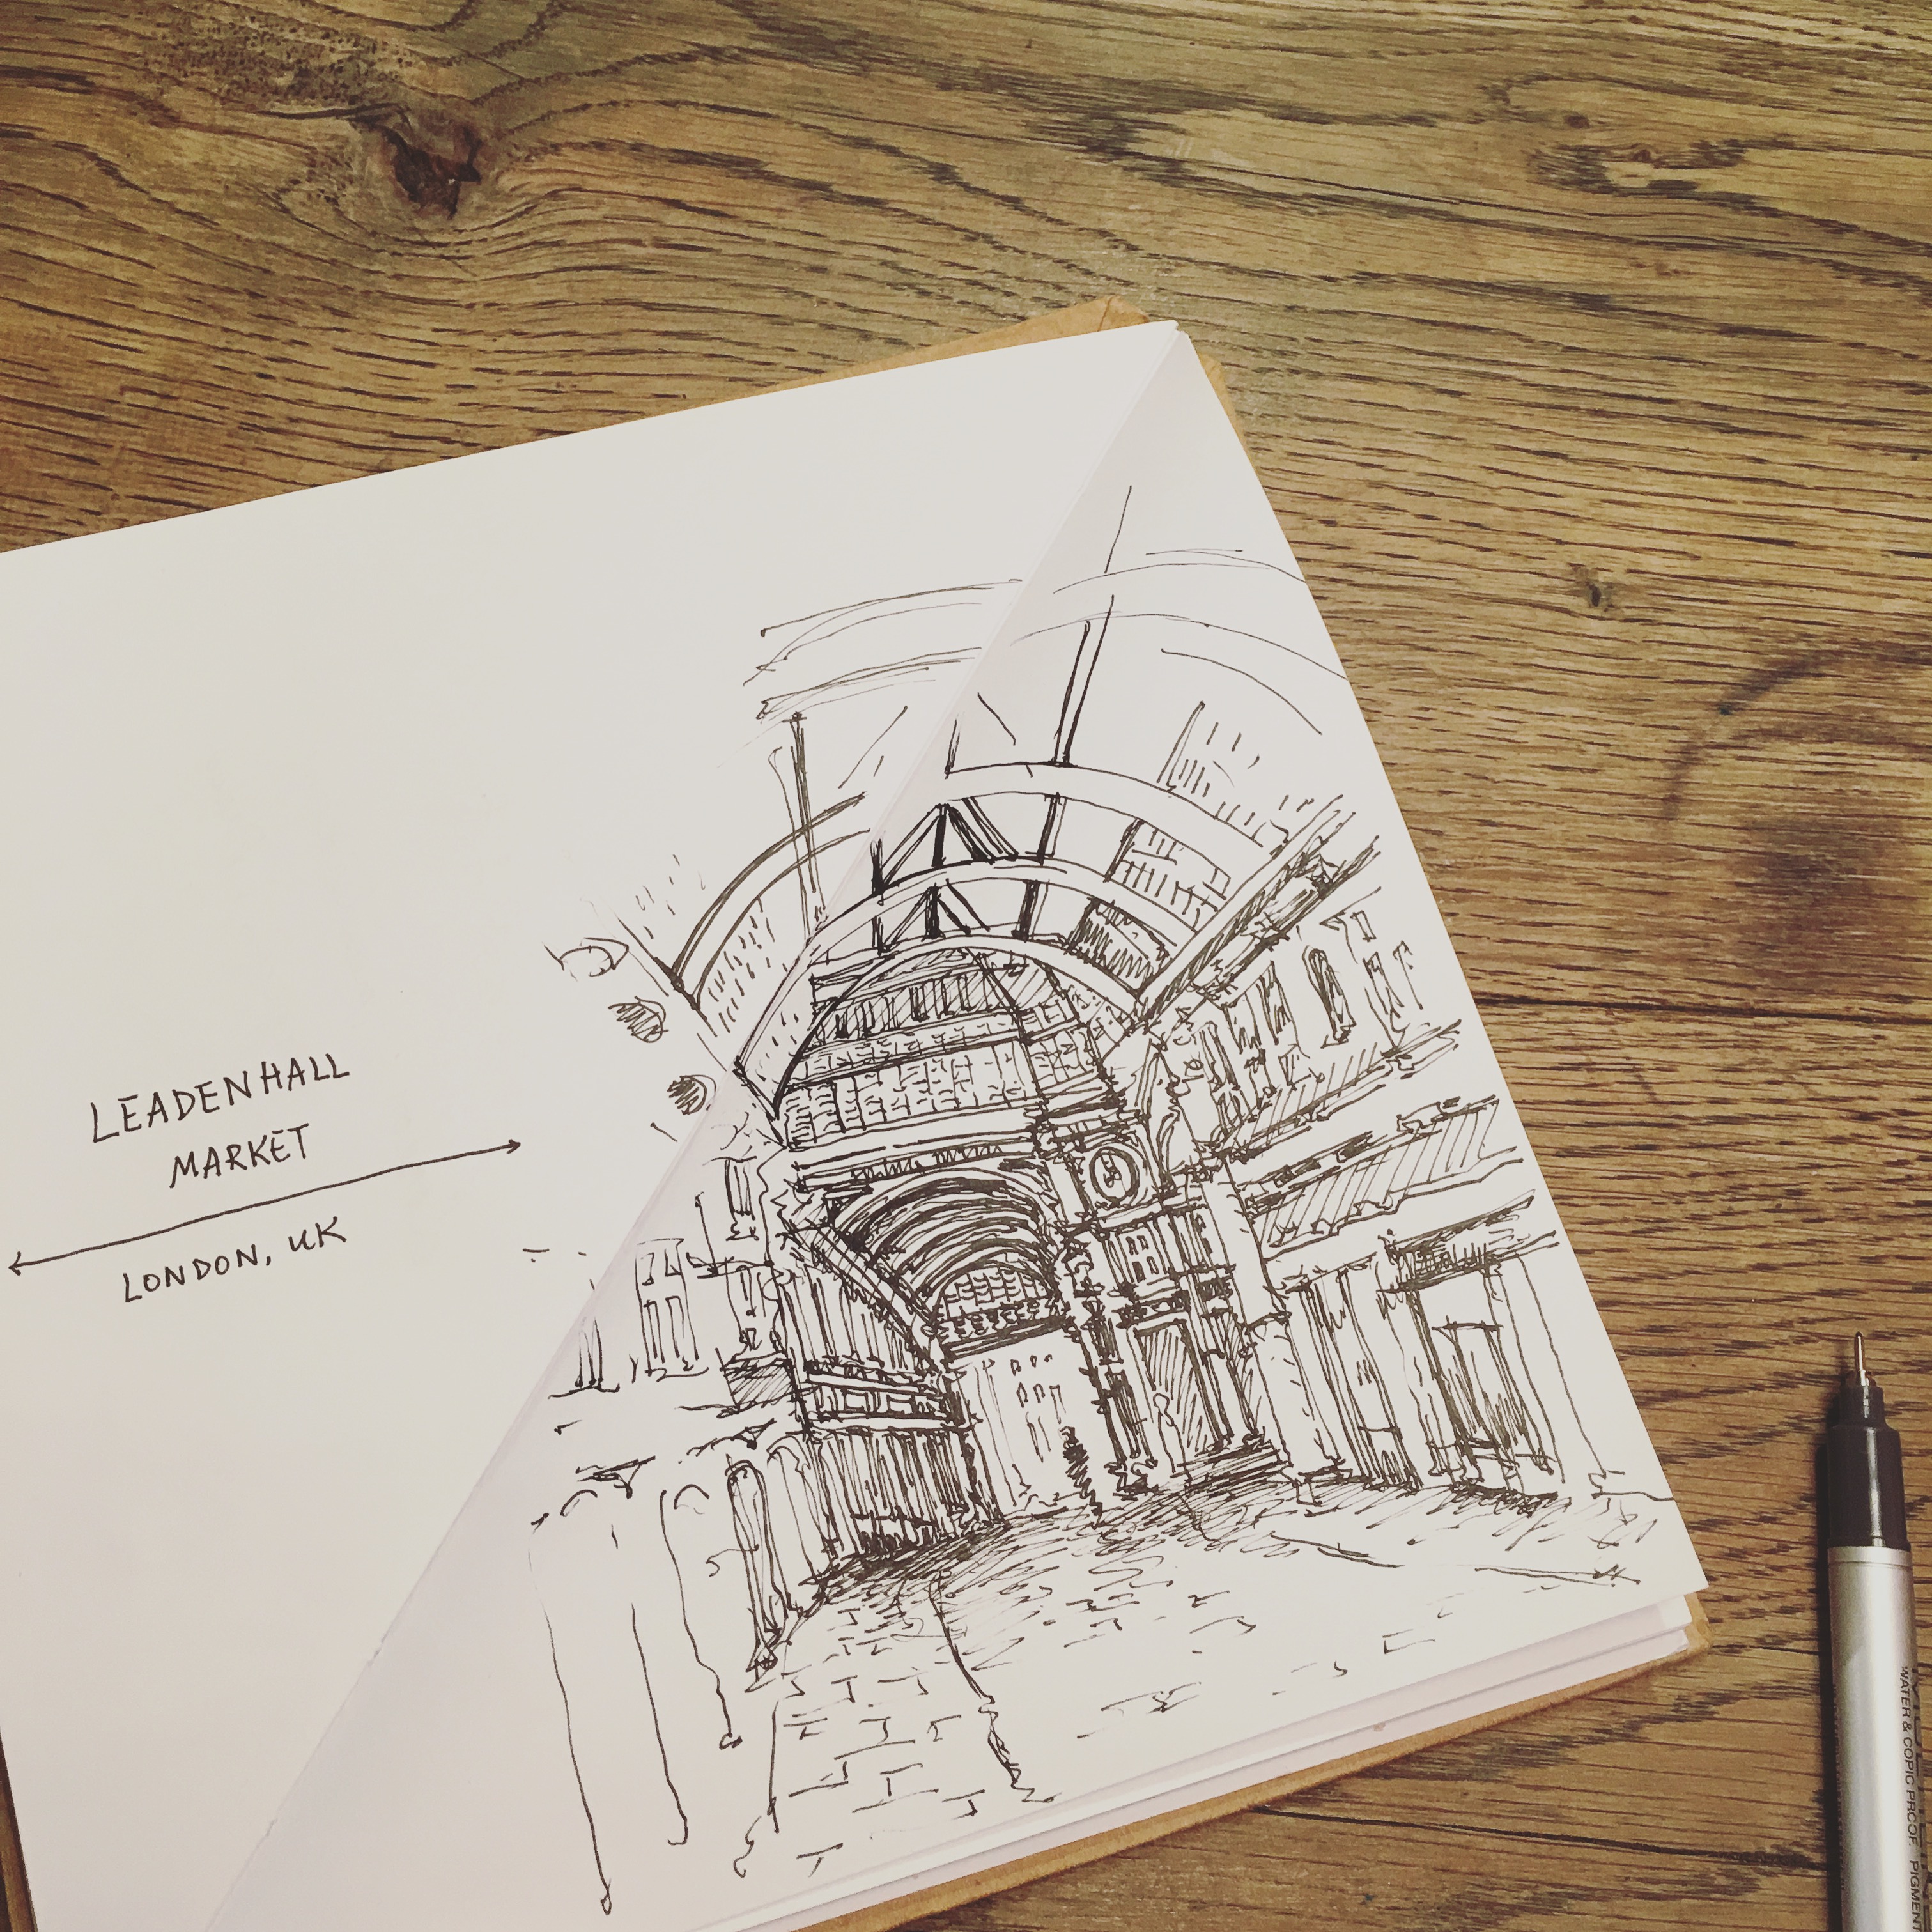 LEADENHALL
MARKET
LONDON, UK
WATER & COPIC PROOF PIGMENT